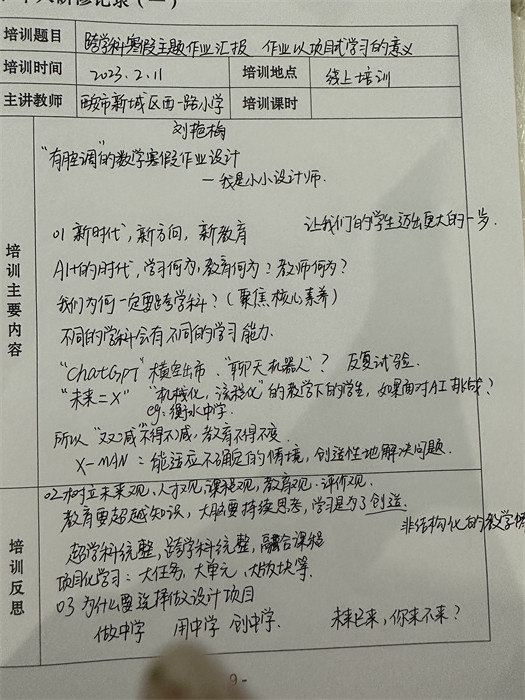 个人研修记录（一）
培训题目 跨学科寒假主题作业汇报 作业以项目式学习的意义
培训时间 2023.2.11 培训地点 线上培训
主讲教师 西安市新城区西一路小学 培训课时
刘艳梅
培训主要内容
“有腔调”的数学寒假作业设计
—我是小小设计师.
01 新时代，新方向，新教育 让我们的学生迈出更大的一步.
AI+的时代，学习何为，教育何为？教师何为？
我们为何一定要跨学科？（聚焦核心素养）
不同的学科会有不同的学习能力.
“ChatGpt”横空出市.“聊天机器人”？ 反复试验.
“未来=X” “机械化，流程化”的教学下的学生，如果面对AI挑战？
eg：衡水中学.
所以“双减”不得不减，教育不得不变.
X-MAN：能适应不确定的情境，创造性地解决问题.
培训反思
02 树立未来观、人才观、课程观，教育观、评价观.
教育要超越知识，大脑要持续思考，学习是为了创造.
非结构化的教学情
超学科统整，跨学科统整，融合课程
项目化学习：大任务，大单元，大版块等.
03 为什么要选择做设计项目
做中学 用中学 创中学. 未来已来，你来不来？
- 9 -